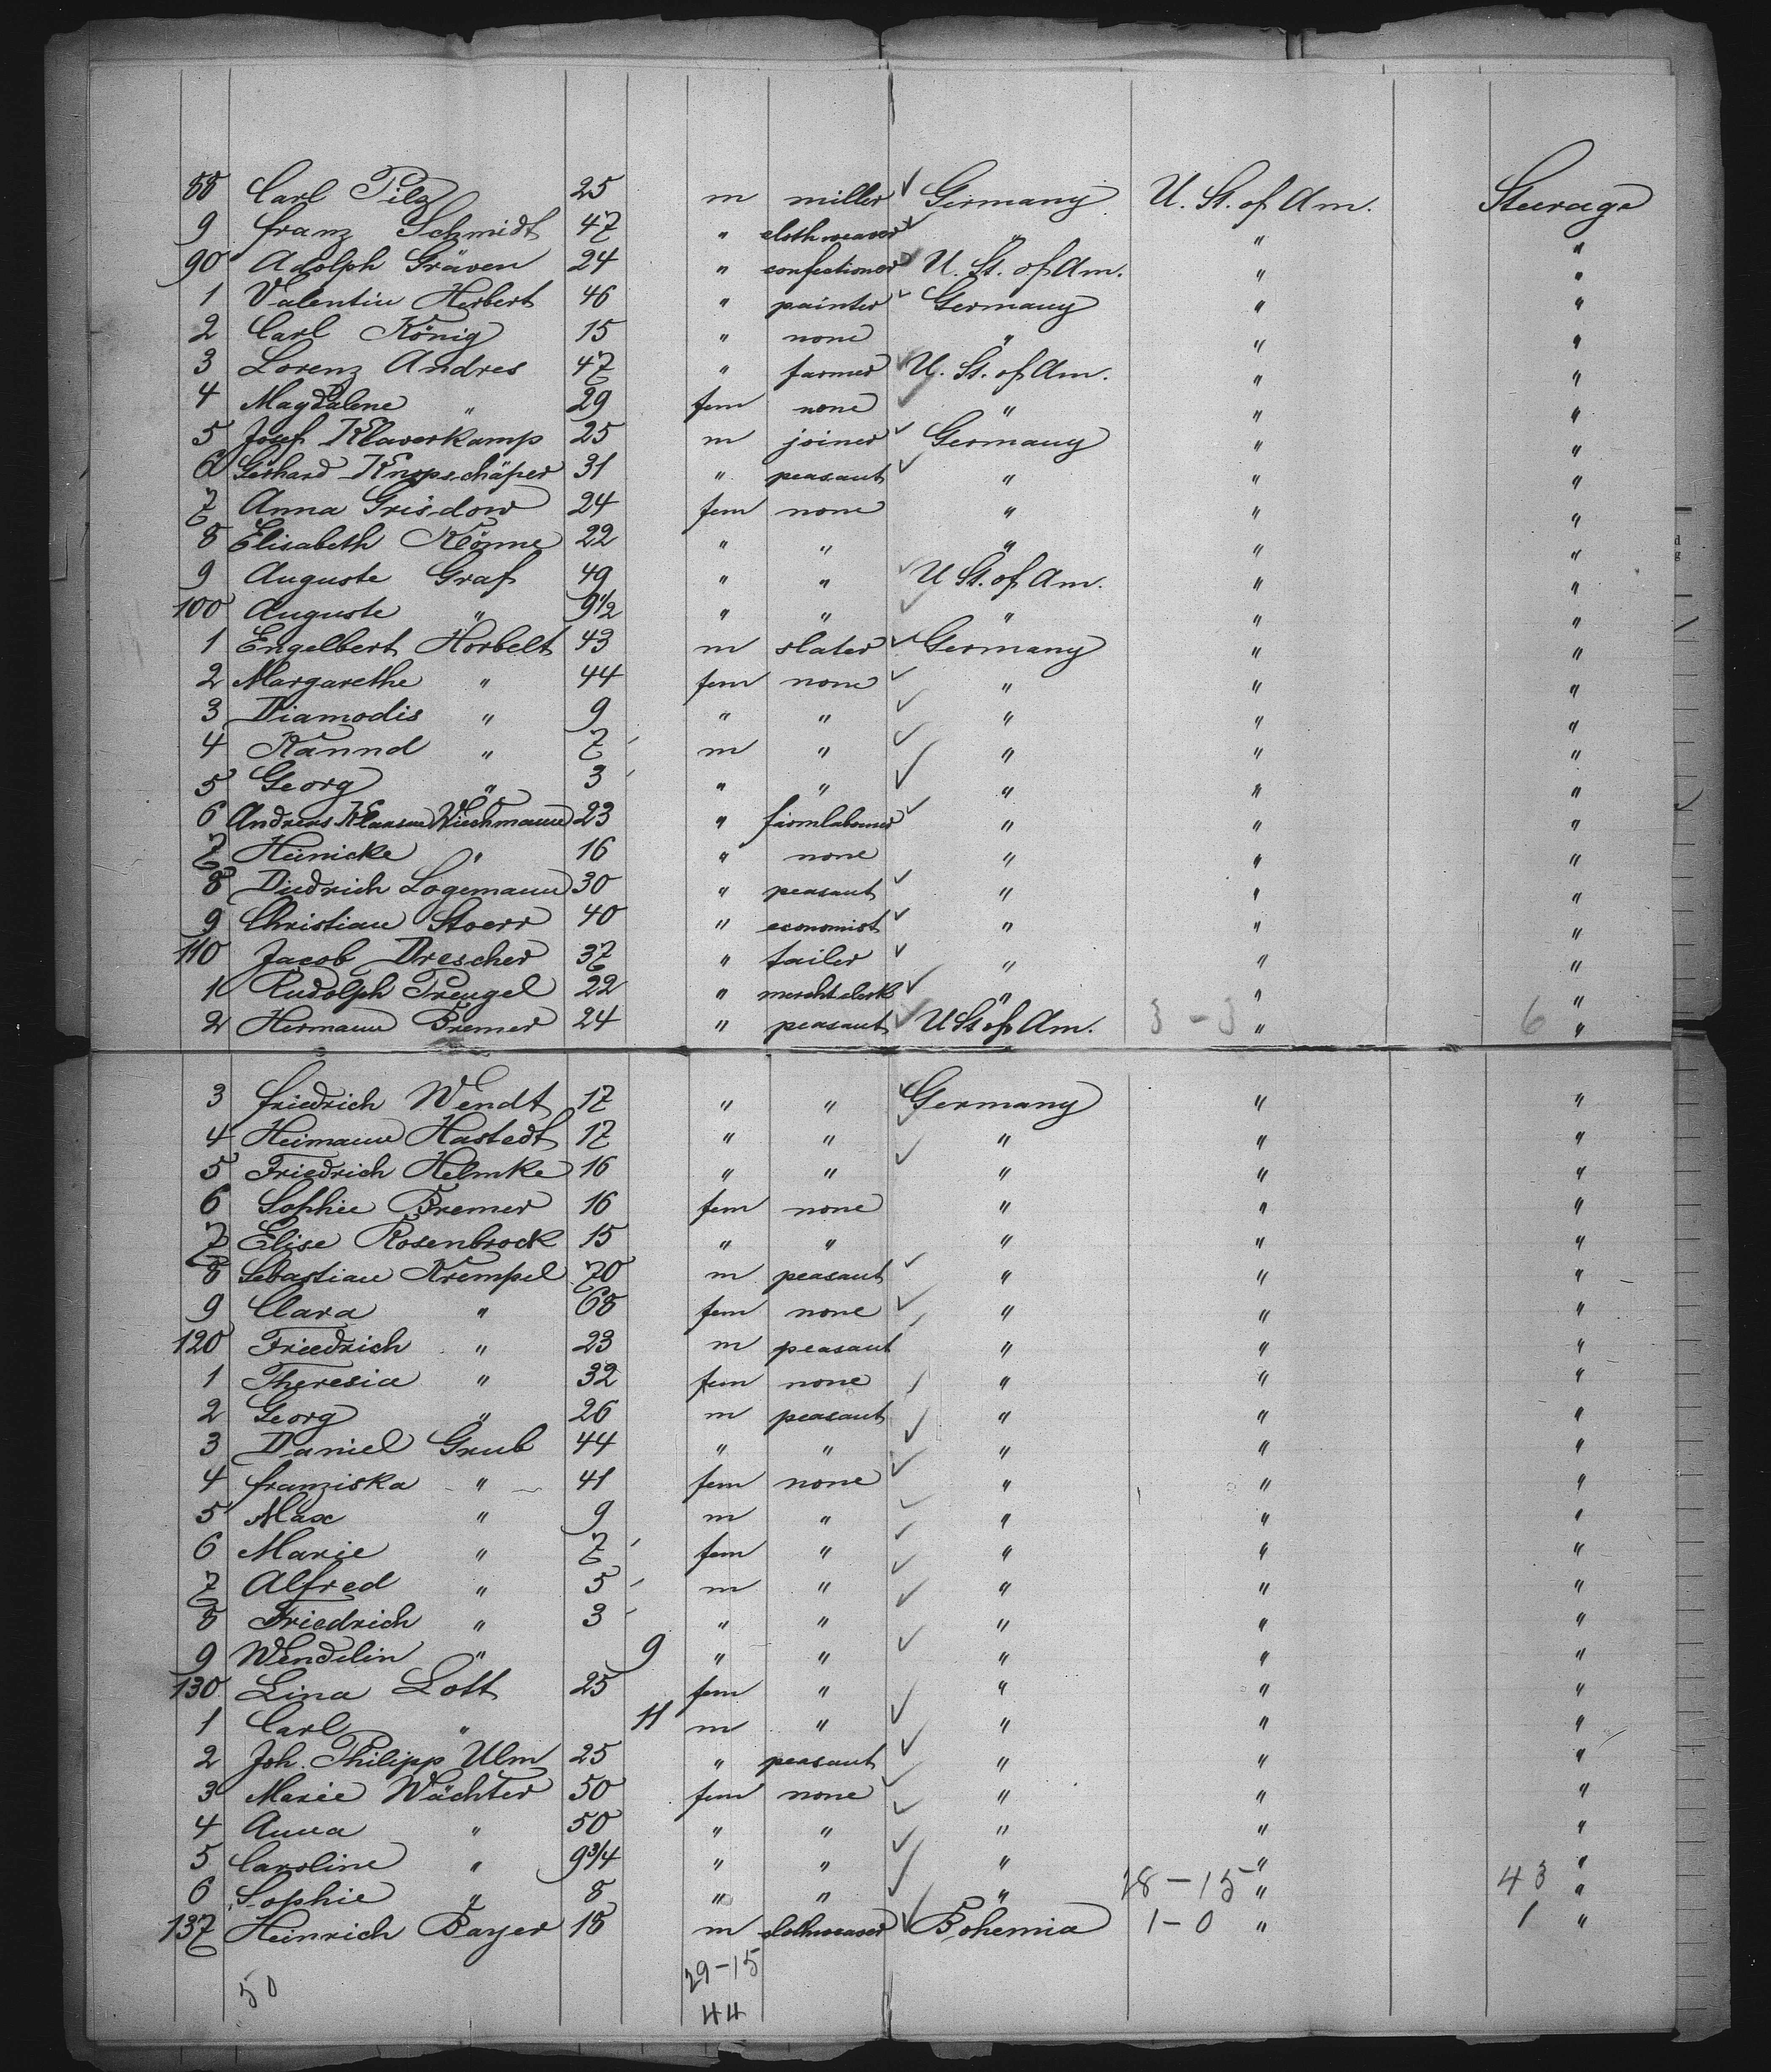 88 Carl Pilz 25 m miller ✓ Germany U. St. of Am. Steerage
9 Franz Schmidt 47 " clothweaver ✓ " " "
90 Adolph Gräven 24 " confectioner U. St. of Am. " "
1 Valentin Herbert 46 " painter ✓ Germany " "
2 Carl König 15 " none " " "
3 Lorenz Andres 47 " farmer ✓ U. St. of Am. " "
4 Magdalene " 29 fem none ✓ " " "
5 Josef Klaverkamp 25 m joiner ✓ Germany " "
6 Gerhard Knopschäfer 31 " peasant ✓ " " "
7 Anna Grisdow 24 fem none " " "
8 Elisabeth Könne 22 " " " " "
9 Auguste Graf 49 " " ✓ U St. of Am. " "
100 Auguste " 9 1/2 " " ✓ " " "
1 Engelbert Horbelt 43 m slater ✓ Germany " "
2 Margarethe " 44 fem none ✓ " " "
3 Diamodis " 9 " " ✓ " " "
4 Kannd " 7 m " ✓ " " "
5 Georg " 3 " " ✓ " " "
6 Andreas Klausen Wiechmann 23 " farmlabourer ✓ " " "
7 Heinicke " 16 " none " " "
8 Diedrich Logemann 30 " peasant ✓ " " "
9 Christian Stoerr 40 " economist ✓ " " "
110 Jacob Drescher 37 " tailer ✓ " " "
1 Rudolph Prengel 22 " merchtclerk ✓ " " "
2 Hermann Bremer 24 " peasant ✓ U St of Am. 3-3 " 6 "
3 Friedrich Wendt 17 " " ✓ Germany " "
4 Heimann Hastedt 17 " " ✓ " " "
5 Friedrich Helmke 16 " " ✓ " " "
6 Sophie Bremer 16 fem none " " "
7 Elise Rosenbrock 15 " " " " "
8 Sebastian Krempel 70 m peasant ✓ " " "
9 Clara " 68 fem none ✓ " " "
120 Friedrich " 23 m peasant ✓ " " "
1 Theresia " 32 fem none ✓ " " "
2 Georg " 26 m peasant ✓ " " "
3 Daniel Grub 44 " " ✓ " " "
4 Franziska " 41 fem none ✓ " " "
5 Max " 9 m " ✓ " " "
6 Marie " 7 fem " ✓ " " "
7 Alfred " 5 m " ✓ " " "
8 Friedrich " 3 " " ✓ " " "
9 Wendelin " 9 " " ✓ " " "
130 Lina Lott 25 fem " " " "
1 Carl " 11 m " ✓ " " "
2 Joh. Philipp Ulm 25 " peasant ✓ " " "
3 Marie Wächter 50 fem none ✓ " " "
4 Anna " 50 " " ✓ " " "
5 Caroline " 9 3/4 " " ✓ " " "
6 Sophie " 8 " " ✓ " 28-15 " 43 "
137 Heinrich Bayer 18 m clothweaver ✓ Bohemia 1-0 " 1 "
50 29-15
44